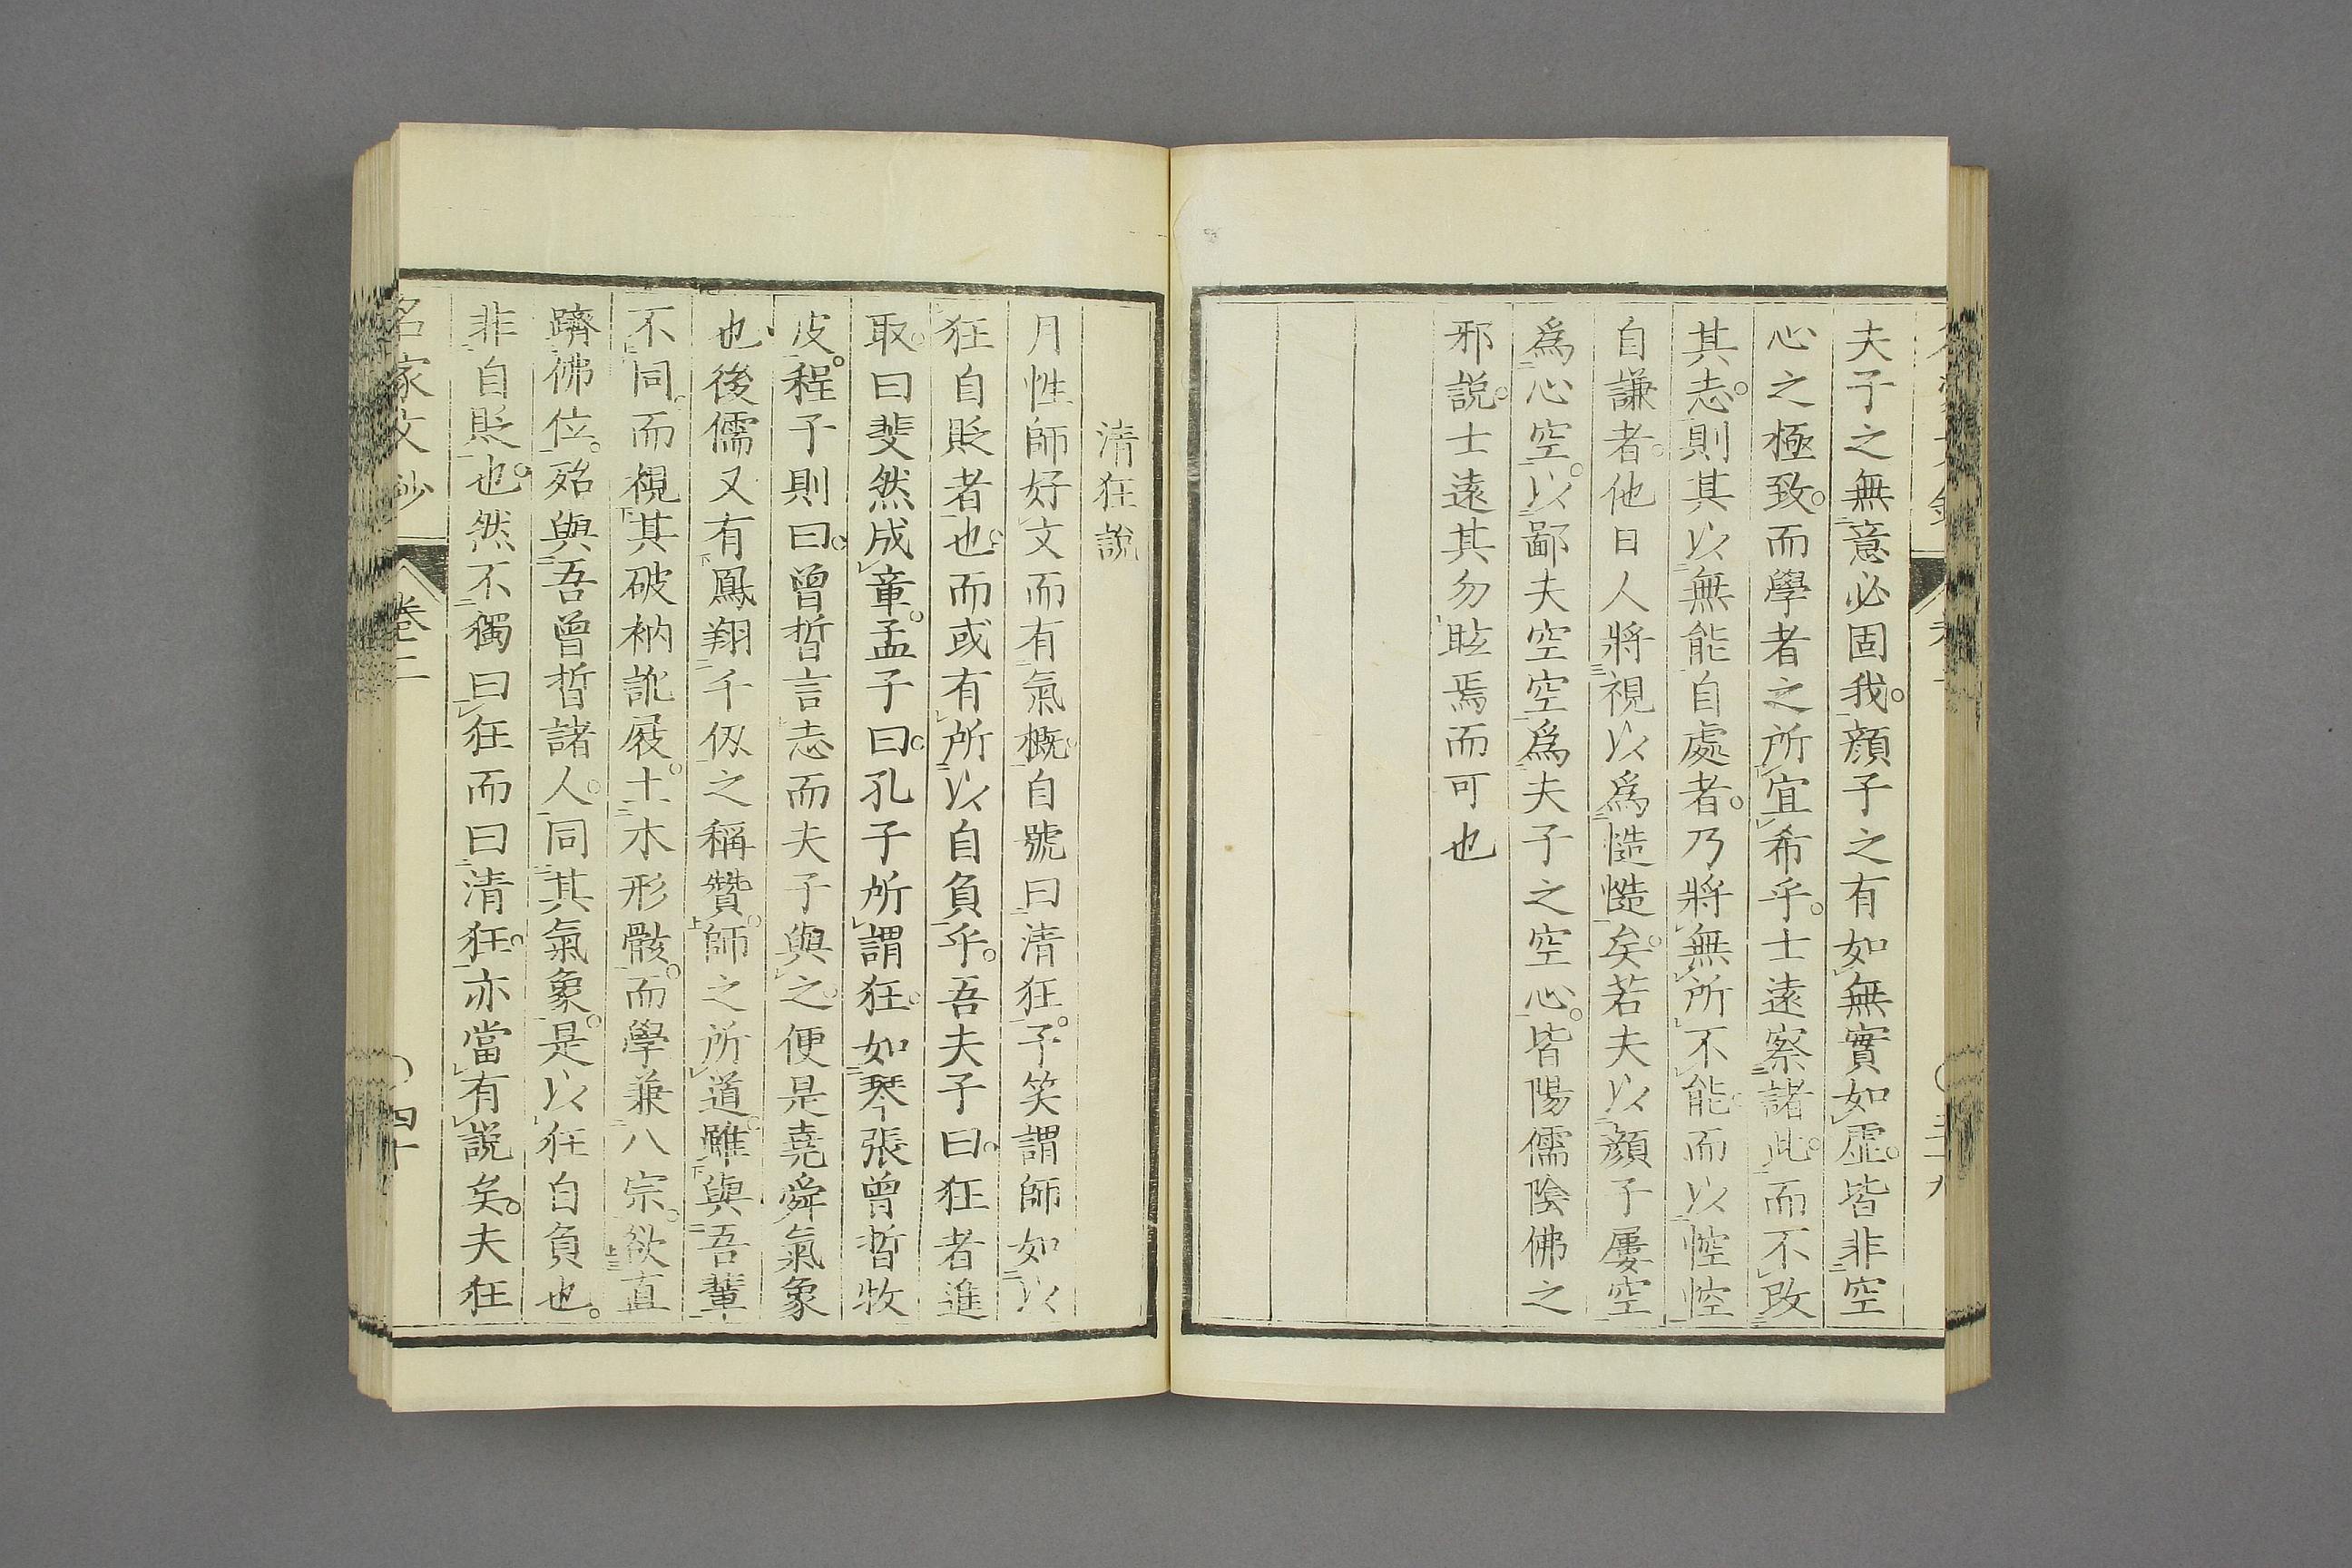 夫子之無意必固我。顔子之有如無實如虛。皆非空
心之極致。而學者之所宜希乎。士遠察諸此。而不改
其志。則其以無能自處者。乃將無所不能。而以悾悾
自謙者。他日人將視以爲慥慥矣。若夫以顔子屢空
爲心空。以鄙夫空空爲夫子之空心。皆陽儒陰佛之
邪説。士遠其勿眩焉而可也
清狂說
月性師好文而有氣概。自號曰清狂。予笑謂師如以
狂自貶者也。而或有所以自負乎。吾夫子曰。狂者進
取。曰斐然成章。孟子曰。孔子所謂狂。如琴張曾晳牧
皮。程子則曰。曾晳言志而夫子與之。便是堯舜氣象
也後儒又有鳳翔千仭之稱贊。師之所道。雖與吾輩
不同。而視其破衲訛屐。土木形骸。而學兼八宗。欲直
躋佛位。殆與吾曾晳諸人。同其氣象。是以狂自負也。
非自貶也。然不獨曰狂而曰清狂。亦當有説矣。夫狂
名家文鈔 卷二 四十